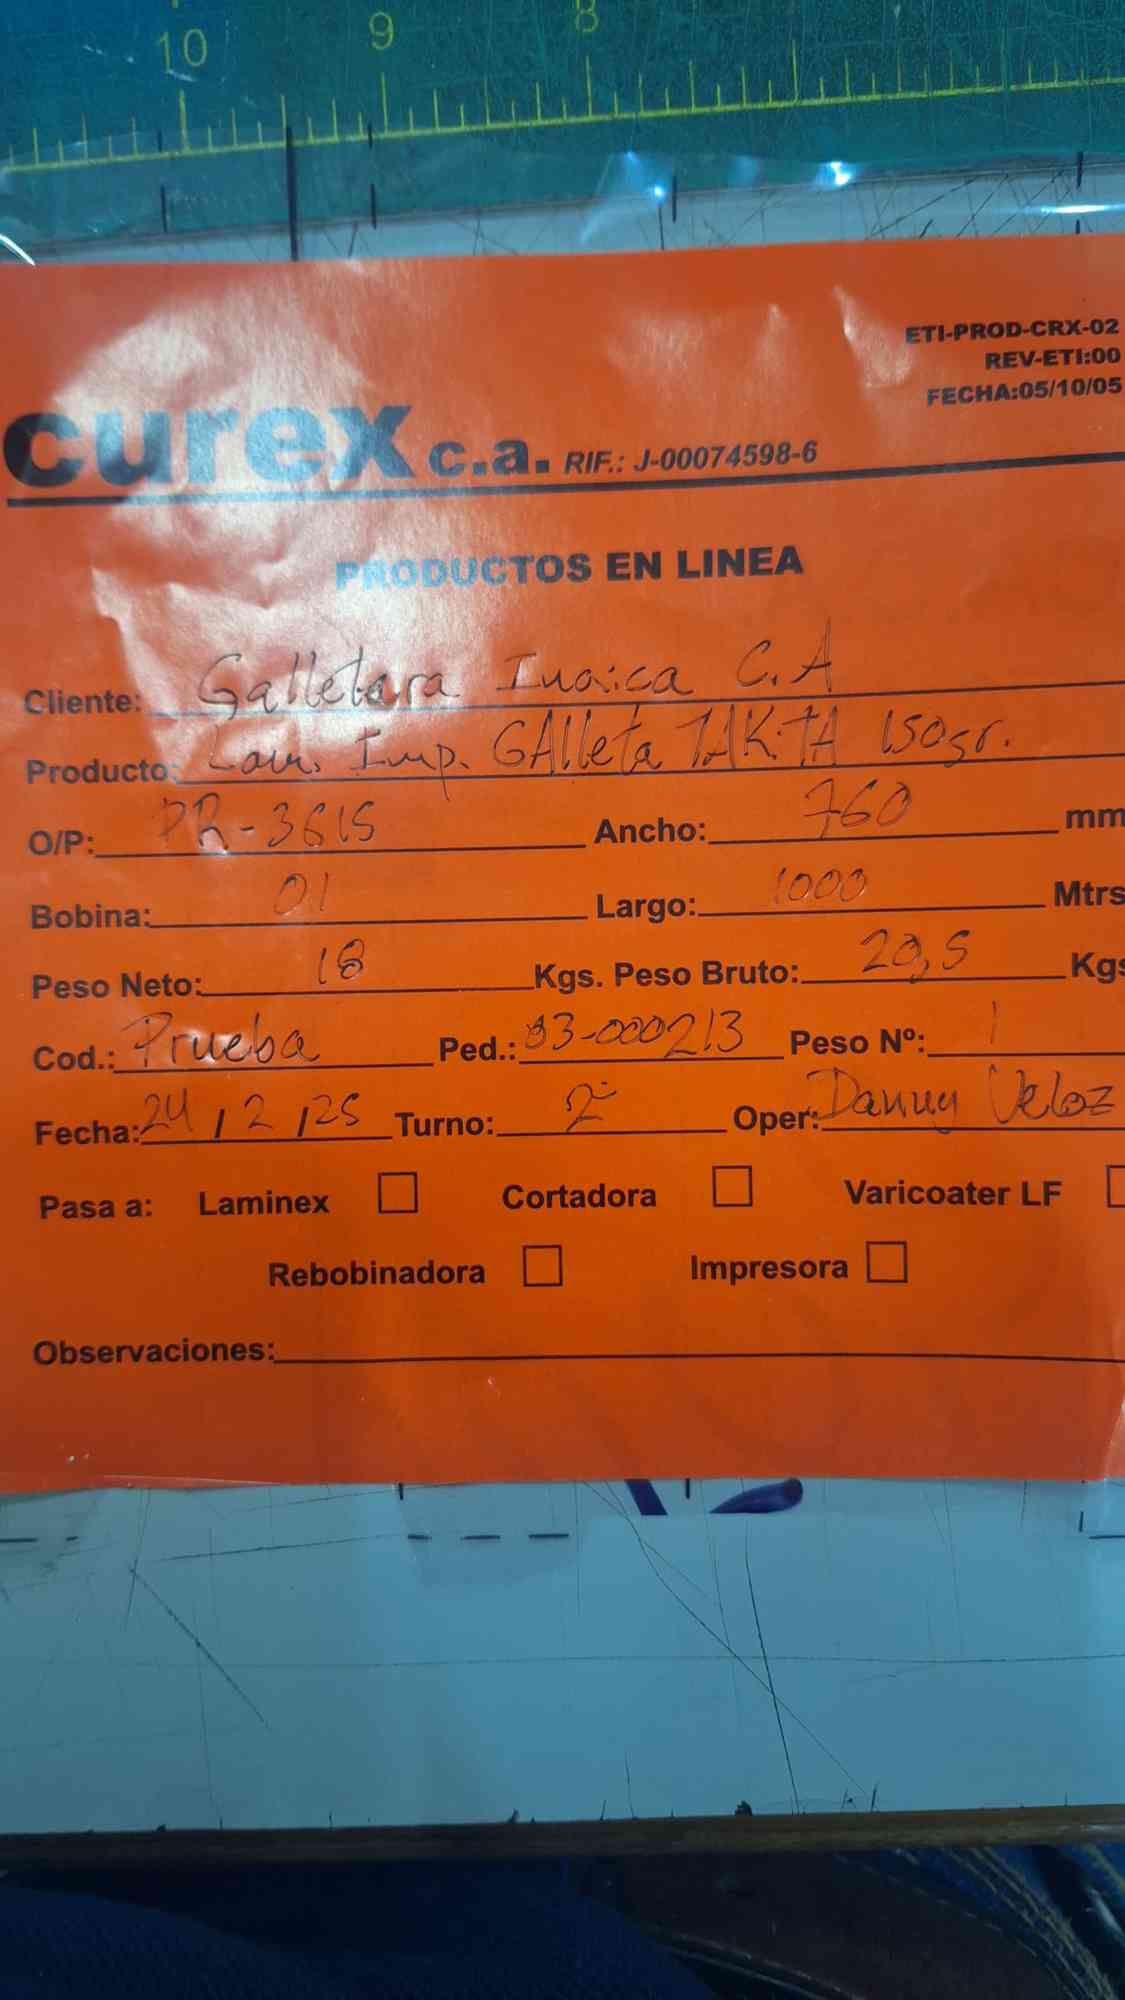 10 9 8
ETI-PROD-CRX-02
REV-ETI:00
FECHA:05/10/05
curex c.a. RIF.: J-00074598-6
PRODUCTOS EN LINEA
Cliente: Galletera Inaica C.A
Producto: Lam. Imp. GAlleta TAKITA 150gr.
O/P: PR-3615 Ancho: 760 mm
Bobina: 01 Largo: 1000 Mtrs
Peso Neto: 18 Kgs. Peso Bruto: 20,5 Kgs
Cod.: Prueba Ped.: 03-000213 Peso Nº: 1
Fecha: 24/2/25 Turno: 2 Oper: Danny Veloz
Pasa a: Laminex Cortadora Varicoater LF
Rebobinadora Impresora
Observaciones: